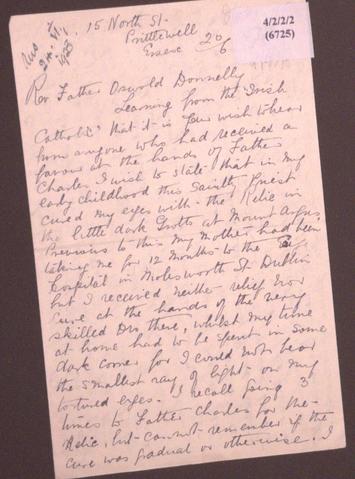 4/2/2/2
(6725)
15 North St.
Prittlewell
Essex 20/6
Rev Father Oswald Donnelly
Learning from the "Irish
Catholic" that it is your wish to hear
from anyone who had received a
favour at the hands of Father
Charles I wish to state that in my
early childhood this Saintly Priest
cured my eyes with the Relic in
the little dark Grotto at Mount Argus
Previous to this my Mother had been
taking me for 12 months to the
hospital in Molesworth St Dublin
but I received neither relief nor
cure at the hands of the very
skilled Drs there, whilst my time
at home had to be spent in some
dark corner for I could not bear
the smallest ray of light on my
tortured eyes. I recall going 3
times to Father Charles for the
Relic, but cannot remember if the
cure was gradual or otherwise. I